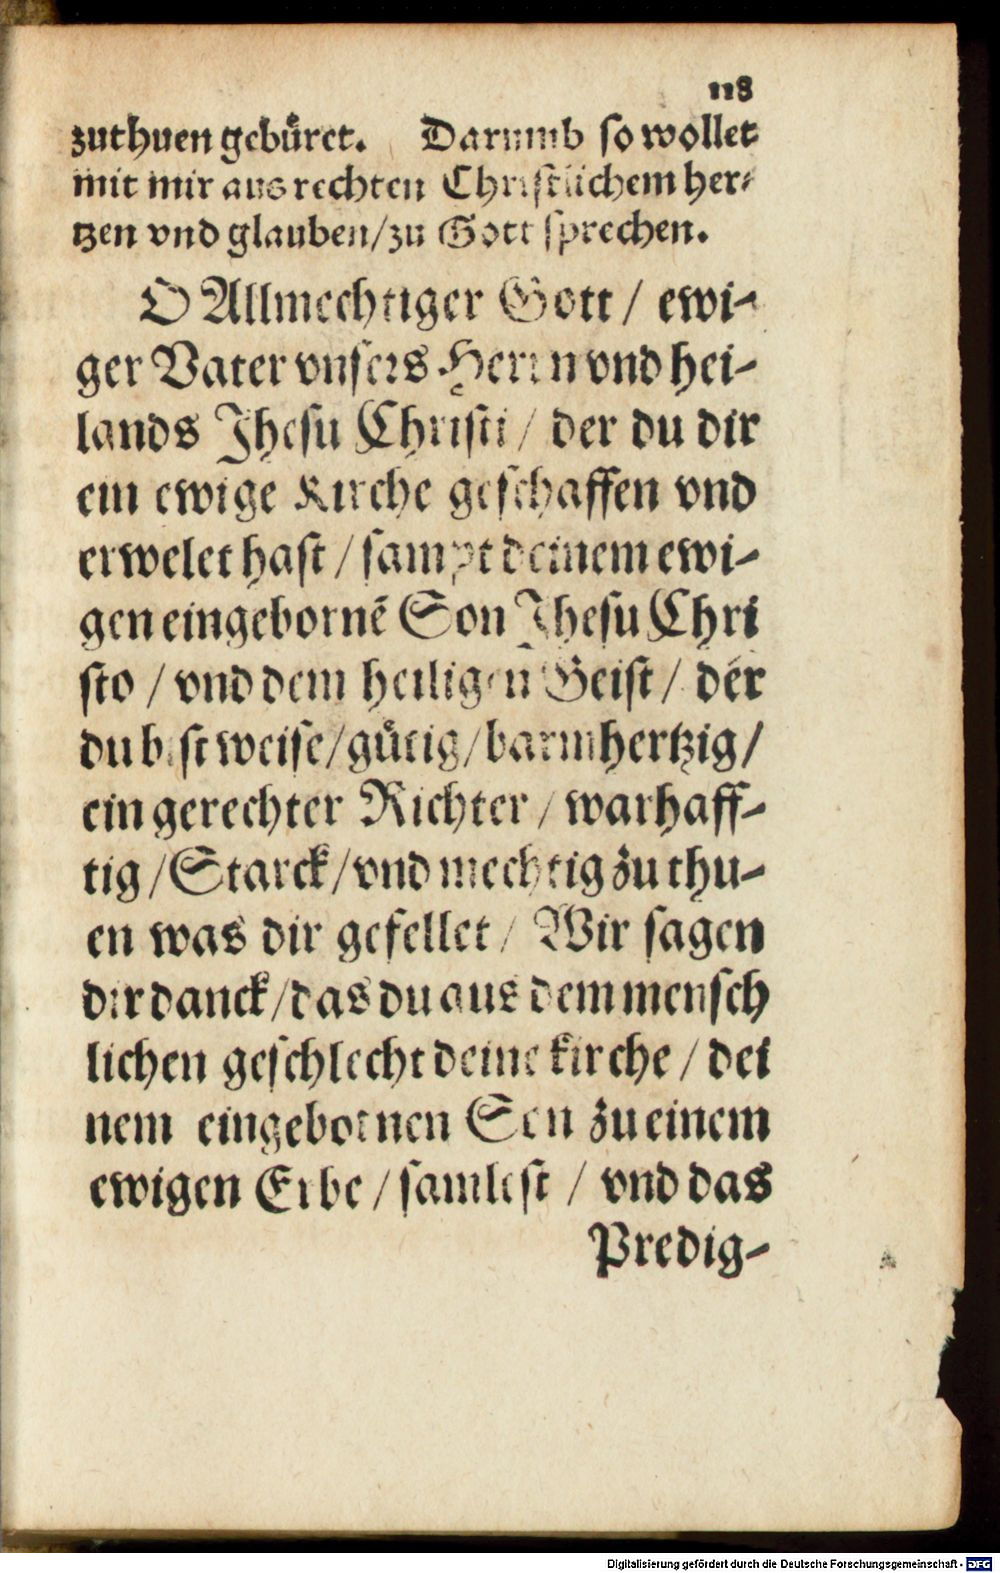 118
zuthuen gebüret. Darumb so wollet
mit mir aus rechten Christlichem her-
tzen vnd glauben/zu Gott sprechen.
O Allmechtiger Gott / ewi-
ger Vater vnsers Herrn vnd hei-
lands Jhesu Christi / der du dir
ein ewige Kirche geschaffen vnd
erwelet hast / sampt deinem ewi-
gen eingebornē Son Jhesu Chri
sto / vnd dem heiligen Geist / der
du bist weise/gütig/barmhertzig/
ein gerechter Richter / warhaff-
tig/Starck/vnd mechtig zu thu-
en was dir gefellet / Wir sagen
dir danck/das du aus dem mensch
lichen geschlecht deine kirche / dei
nem eingebornen Son zu einem
ewigen Erbe / samlest / vnd das
Predig-
Digitalisierung gefördert durch die Deutsche Forschungsgemeinschaft - DFG